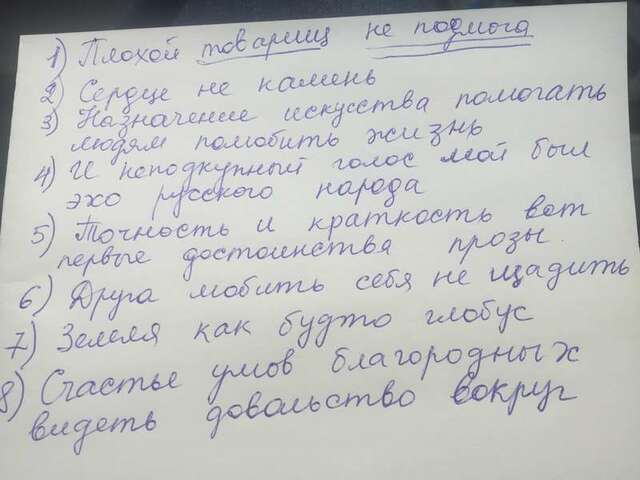 1) Плохой товарищ не подмога
2) Сердце не камень
3) Назначение искусства помогать
людям полюбить жизнь
4) И неподкупный голос мой был
эхо русского народа
5) Точность и краткость вот
первые достоинства прозы.
6) Друга любить себя не щадить
7) Земля как будто глобус
8) Счастье умов благородных
видеть довольство вокруг